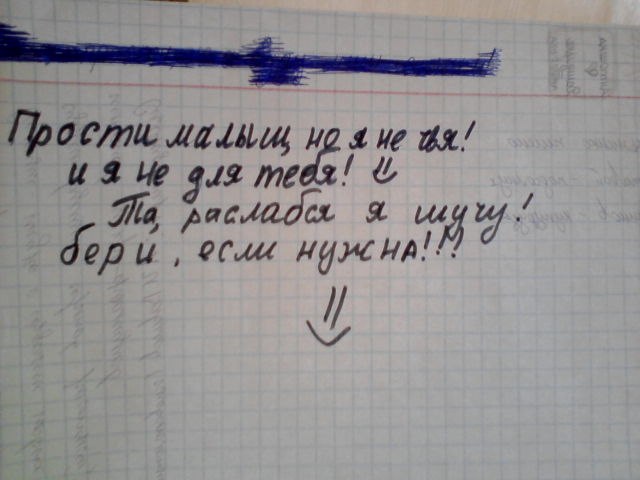 Прости малыщ но я не чья!
и я не для тебя! =)
Та, раслабся я шучу!
бери, если нужна!!!